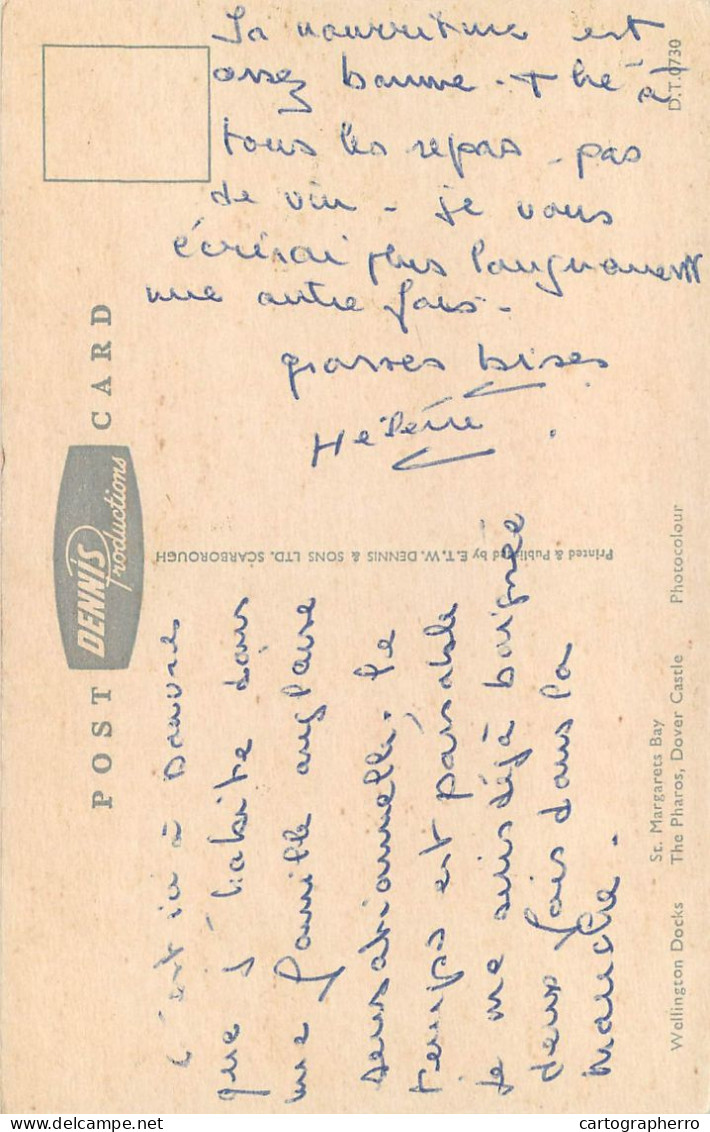 POST CARD
DENNIS
Productions
c'est ici à Douvres
que j'habite dans
une famille anglaise
sensationnelle. Le
temps est passable
je me suis déjà baignée
deux fois dans la
manche.
La nourriture est
assez bonne - thé à
tous les repas - pas
de vin - je vous
écrirai plus longuement
une autre fois -
grosses bises
Hélène
Printed & Published by E.T.W. DENNIS & SONS LTD. SCARBOROUGH
Wellington Docks
St. Margarets Bay
The Pharos, Dover Castle
Photocolour
D.T.0730
delcampe.net
cartographerro